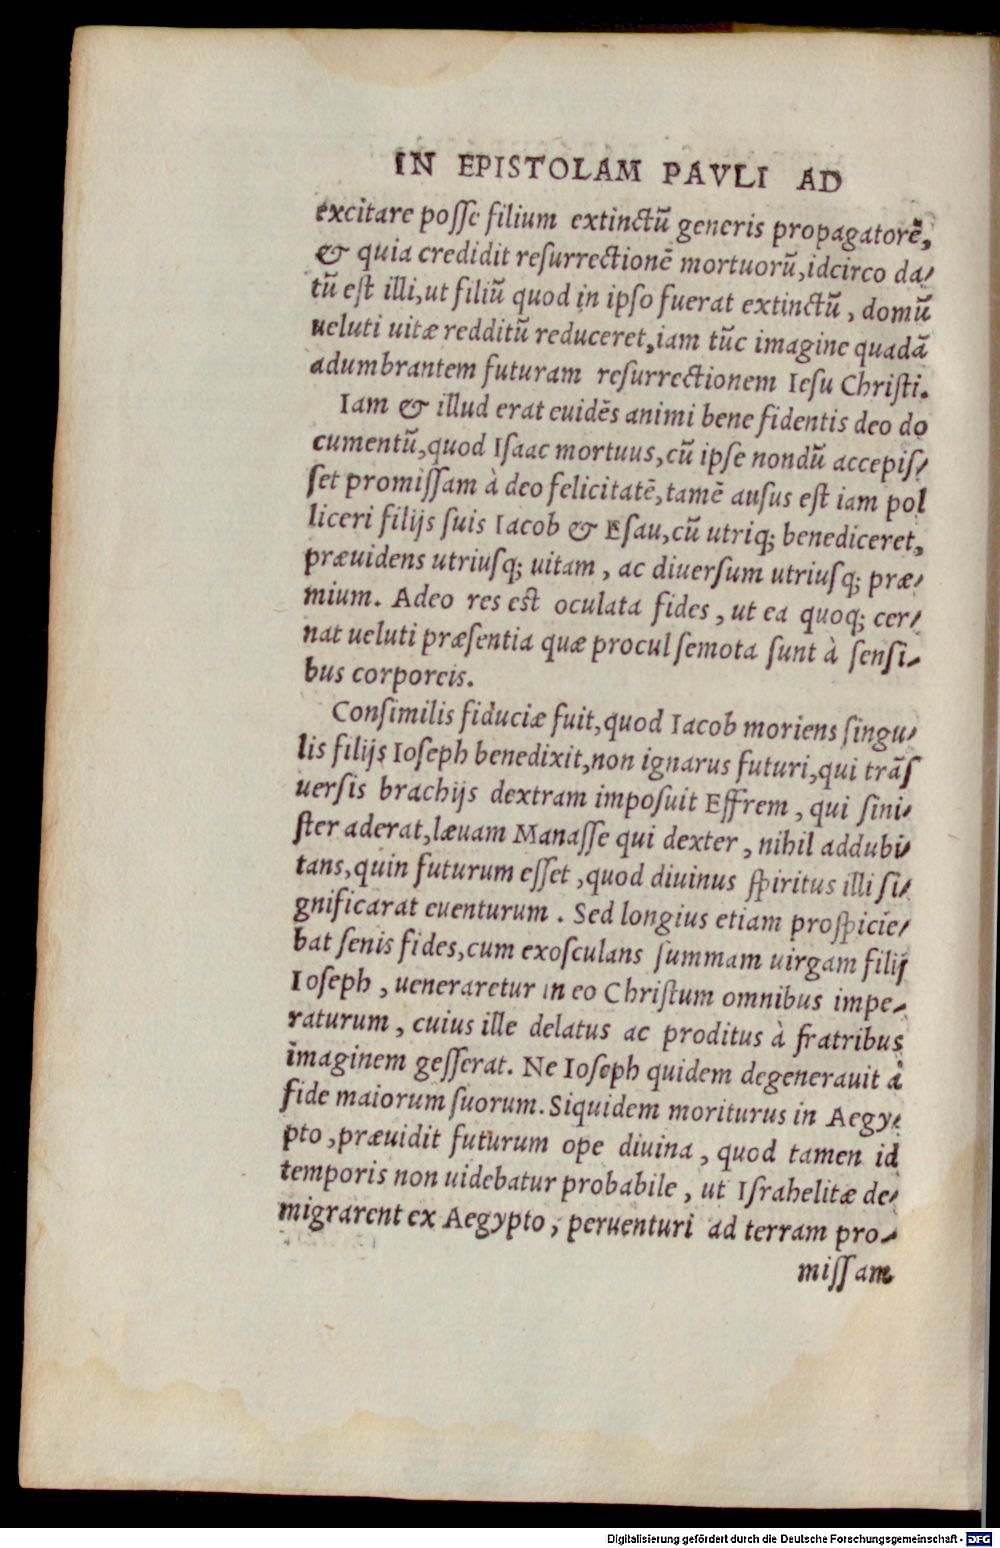 IN EPISTOLAM PAVLI AD
excitare posse filium extinctũ generis propagatorẽ,
& quia credidit resurrectionẽ mortuorũ, idcirco da/
tũ est illi, ut filiũ quod in ipso fuerat extinctũ, domũ
ueluti uitæ redditũ reduceret, iam tũc imagine quadã
adumbrantem futuram resurrectionem Iesu Christi.
Iam & illud erat euidẽs animi bene fidentis deo do
cumentũ, quod Isaac mortuus, cũ ipse nondũ accepis/
set promissam à deo felicitatẽ, tamẽ ausus est iam pol
liceri filijs suis Iacob & Esau, cũ utriq; benediceret,
præuidens utriusq; uitam, ac diuersum utriusq; præ/
mium. Adeo res est oculata fides, ut ea quoq; cer/
nat ueluti præsentia quæ procul semota sunt à sensi/
bus corporeis.
Consimilis fiduciæ fuit, quod Iacob moriens singu/
lis filijs Ioseph benedixit, non ignarus futuri, qui trãs
uersis brachijs dextram imposuit Effrem, qui sini/
ster aderat, læuam Manasse qui dexter, nihil addubi/
tans, quin futurum esset, quod diuinus spiritus illi si/
gnificarat euenturum. Sed longius etiam prospicie/
bat senis fides, cum exosculans summam uirgam filij
Ioseph, ueneraretur in eo Christum omnibus impe/
raturum, cuius ille delatus ac proditus à fratribus
imaginem gesserat. Ne Ioseph quidem degenerauit à
fide maiorum suorum. Siquidem moriturus in Aegy/
pto, præuidit futurum ope diuina, quod tamen id
temporis non uidebatur probabile, ut Israhelitæ de/
migrarent ex Aegypto, peruenturi ad terram pro/
missam
Digitalisierung gefördert durch die Deutsche Forschungsgemeinschaft - DFG